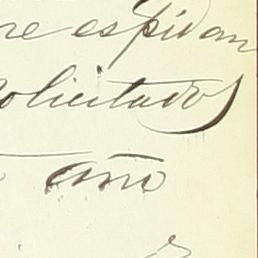 espidan
solicitados
año